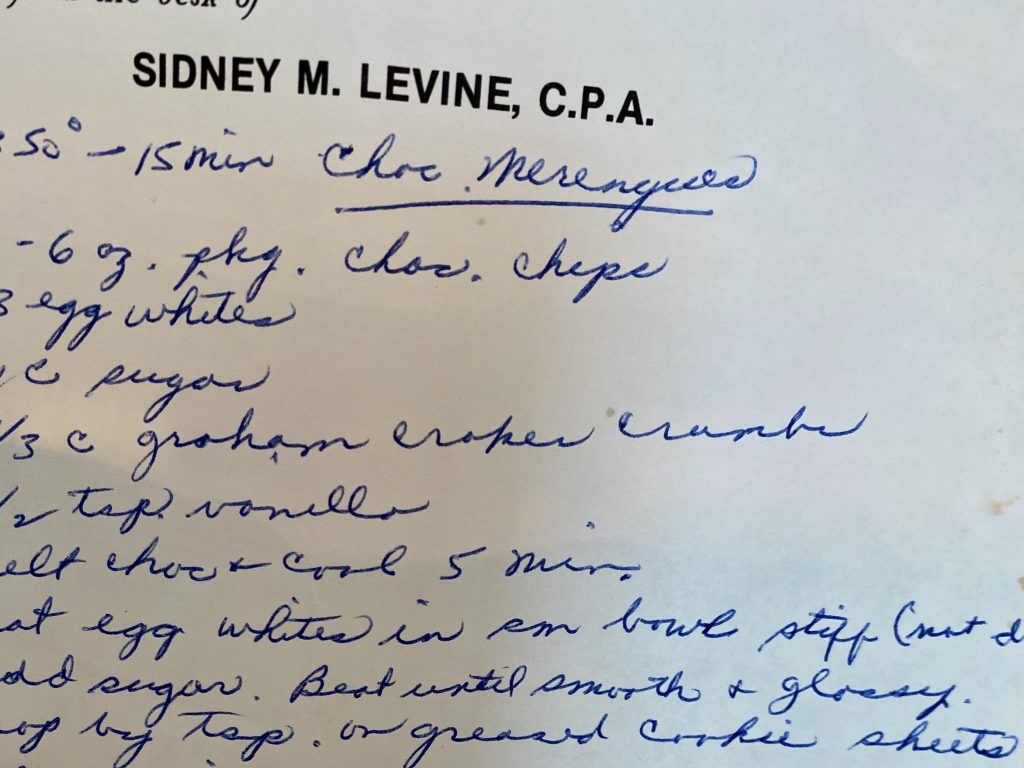 the desk of
SIDNEY M. LEVINE, C.P.A.
350° - 15 min Choc. Merengues
- 6 oz. pkg. choc. chips
3 egg whites
c sugar
/3 c graham craker crumbs
/2 tsp. vanilla
elt choc + cool 5 min.
at egg whites in sm bowl stiff (not d
dd sugar. Beat until smooth + glossy.
op by tsp. on greased cookie sheets